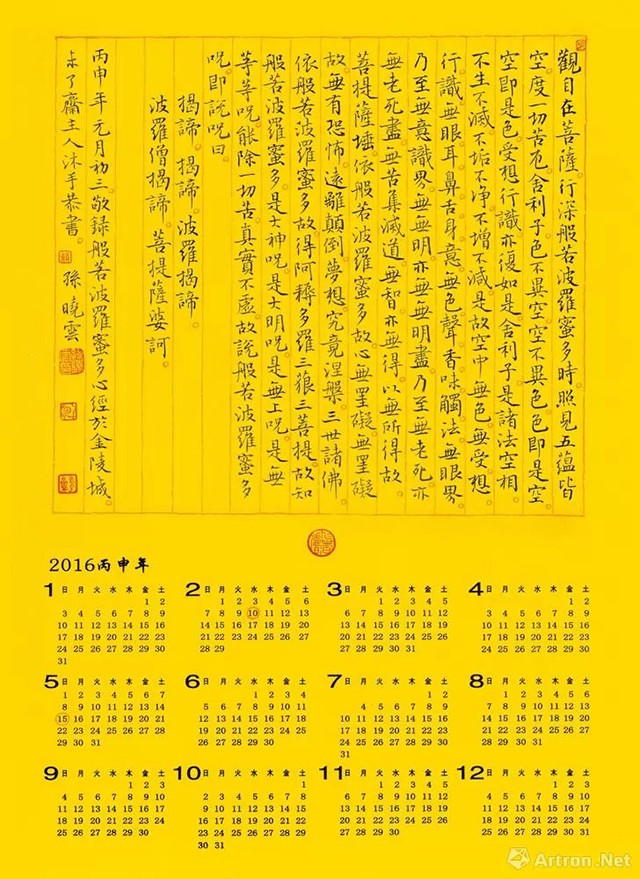 觀自在菩薩行深般若波羅蜜多時照見五蘊皆
空度一切苦厄舍利子色不異空空不異色色即是空
空即是色受想行識亦復如是舍利子是諸法空相
不生不滅不垢不淨不增不減是故空中無色無受想
行識無眼耳鼻舌身意無色聲香味觸法無眼界
乃至無意識界無無明亦無無明盡乃至無老死亦
無老死盡無苦集滅道無智亦無得以無所得故
菩提薩埵依般若波羅蜜多故心無罣礙無罣礙
故無有恐怖遠離顛倒夢想究竟涅槃三世諸佛
依般若波羅蜜多故得阿耨多羅三藐三菩提故知
般若波羅蜜多是大神咒是大明咒是無上咒是無
等等咒能除一切苦真實不虛故說般若波羅蜜多
咒即說咒曰
揭諦 揭諦 波羅揭諦
波羅僧揭諦 菩提薩婆訶
丙申年元月初三敬録般若波羅蜜多心經於金陵城
未了齋主人沐手恭書 孫曉雲
2016丙申年
1 日 月 火 水 木 金 土
1 2
3 4 5 6 7 8 9
10 11 12 13 14 15 16
17 18 19 20 21 22 23
24 25 26 27 28 29 30
31
2 日 月 火 水 木 金 土
1 2 3 4 5 6
7 8 9 10 11 12 13
14 15 16 17 18 19 20
21 22 23 24 25 26 27
28 29
3 日 月 火 水 木 金 土
1 2 3 4 5
6 7 8 9 10 11 12
13 14 15 16 17 18 19
20 21 22 23 24 25 26
27 28 29 30 31
4 日 月 火 水 木 金 土
1 2
3 4 5 6 7 8 9
10 11 12 13 14 15 16
17 18 19 20 21 22 23
24 25 26 27 28 29 30
5 日 月 火 水 木 金 土
1 2 3 4 5 6 7
8 9 10 11 12 13 14
15 16 17 18 19 20 21
22 23 24 25 26 27 28
29 30 31
6 日 月 火 水 木 金 土
1 2 3 4
5 6 7 8 9 10 11
12 13 14 15 16 17 18
19 20 21 22 23 24 25
26 27 28 29 30
7 日 月 火 水 木 金 土
1 2
3 4 5 6 7 8 9
10 11 12 13 14 15 16
17 18 19 20 21 22 23
24 25 26 27 28 29 30
31
8 日 月 火 水 木 金 土
1 2 3 4 5 6
7 8 9 10 11 12 13
14 15 16 17 18 19 20
21 22 23 24 25 26 27
28 29 30 31
9 日 月 火 水 木 金 土
1 2 3
4 5 6 7 8 9 10
11 12 13 14 15 16 17
18 19 20 21 22 23 24
25 26 27 28 29 30
10 日 月 火 水 木 金 土
1
2 3 4 5 6 7 8
9 10 11 12 13 14 15
16 17 18 19 20 21 22
23 24 25 26 27 28 29
30 31
11 日 月 火 水 木 金 土
1 2 3 4 5
6 7 8 9 10 11 12
13 14 15 16 17 18 19
20 21 22 23 24 25 26
27 28 29 30
12 日 月 火 水 木 金 土
1 2 3
4 5 6 7 8 9 10
11 12 13 14 15 16 17
18 19 20 21 22 23 24
25 26 27 28 29 30 31
Artron.Net